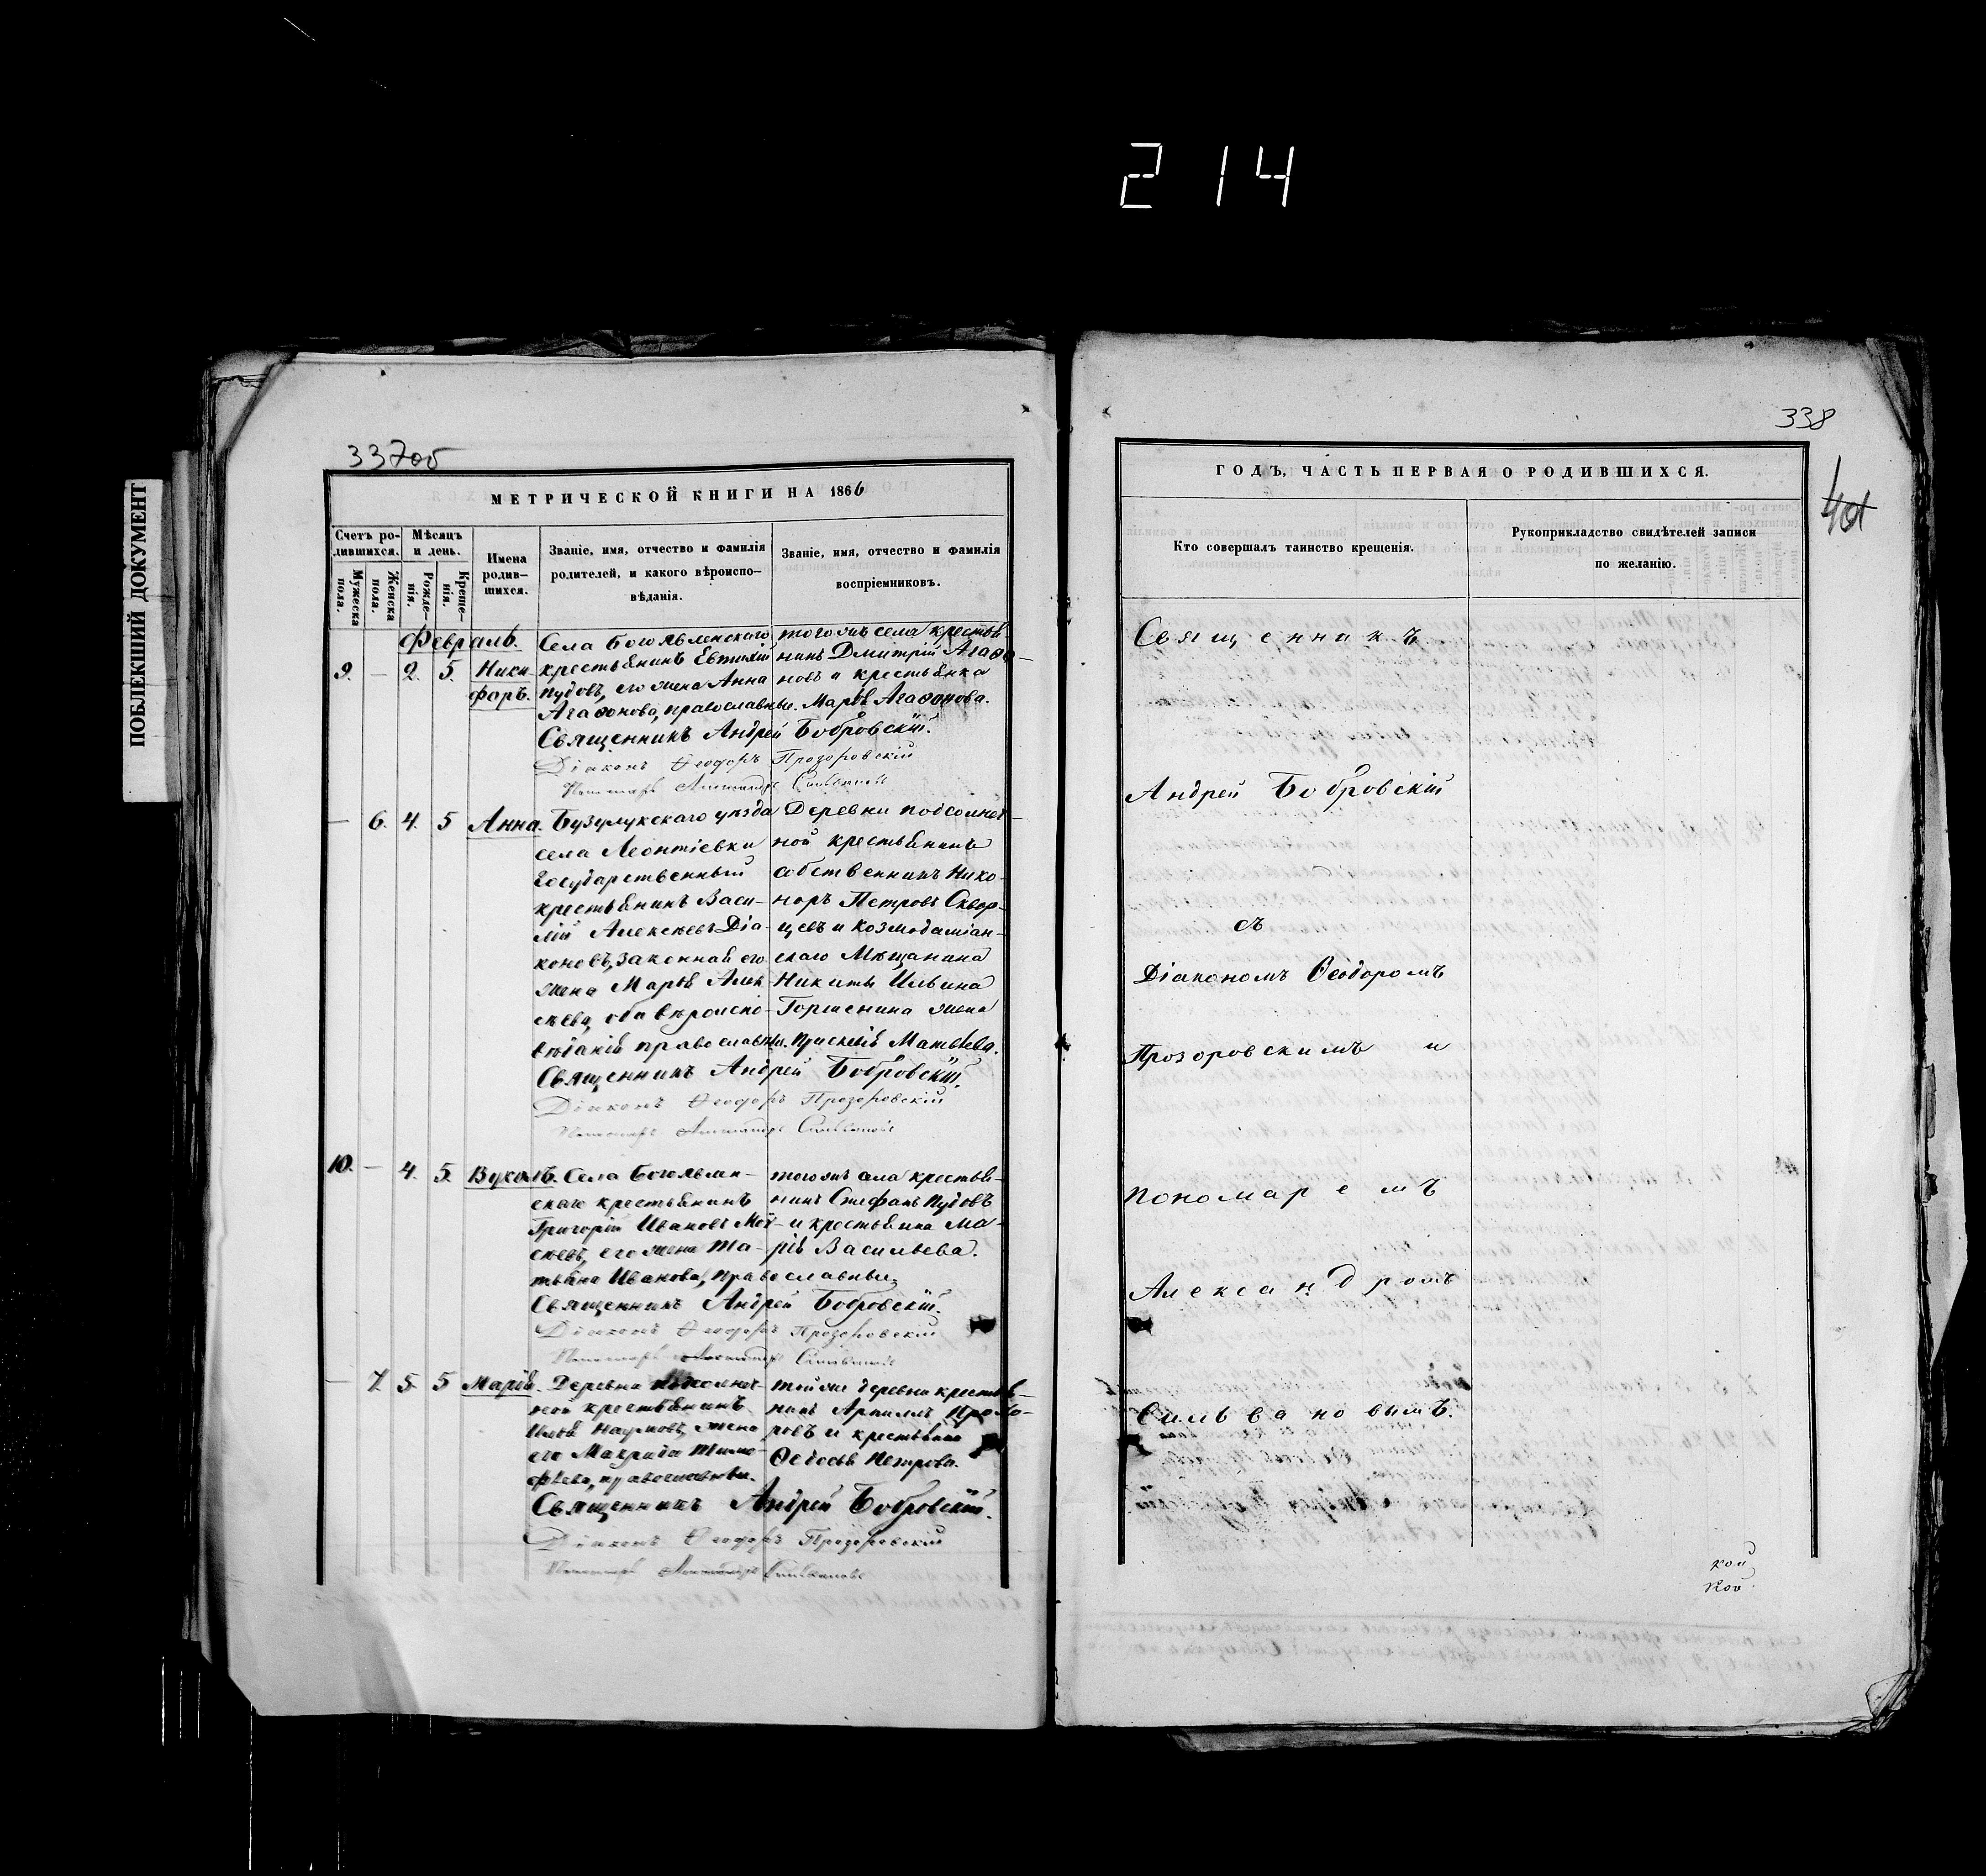 214
ПОБЛЕКШИЙ ДОКУМЕНТ
337об
МЕТРИЧЕСКОЙ КНИГИ НА 1866
Счетъ ро-
дившихся.
Мужеска
пола.
Женска
пола.
Мѣсяцъ
и день.
Рожде-
нія.
Креще-
нія.
Имена
родив-
шихся.
Званіе, имя, отчество и фамилія
родителей, и какого вѣроиспо-
вѣданія.
Званіе, имя, отчество и фамилія
воспріемниковъ.
Февраль.
9. — 2. 5. Ники
форъ.
Села Богоявленскаго
крестьянинъ Евтихій
Пудовъ, его жена Анна
Агаѳонова, православные.
тогожъ села крестья-
нинъ Дмитрій Агаѳо-
новъ и крестьянка
Марѳа Агаѳонова.
Священникъ Андрей Бобровскій.
Діаконъ Ѳеодоръ Прозоровскій
Пономарь Александръ Сильвановъ
— 6. 4. 5 Анна.
Бузулукскаго уѣзда
села Леонтіевки
государственный
крестьянинъ Васи-
лій Алексѣевъ Діа-
коновъ, законная его
жена Марья Алек-
сѣева, оба вѣроиспо-
вѣданія православные.
Деревни Подсолнеч-
ной крестьянинъ
собственникъ Нико-
норъ Петровъ Сквор-
цевъ и Козмодаміан-
скаго Мѣщанина
Никиты Ильина
Горшенина жена
Матвѣева.
Священникъ Андрей Бобровскій.
Діаконъ Ѳеодоръ Прозоровскій
Пономарь Александръ Сильвановъ
10. — 4. 5. Вуколъ.
Села Богоявлен-
скаго крестьянинъ
Григорій Ивановъ Мои-
сѣевъ, его жена Та-
тьяна Иванова, православные.
тогожъ села крестья-
нинъ Стефанъ Пудовъ
и крестьянка Ма-
рія Васильева.
Священникъ Андрей Бобровскій.
Діаконъ Ѳеодоръ Прозоровскій
Пономарь Александръ Сильвановъ
— 7. 5. 5 Марія.
Деревни Подсолнеч-
ной крестьянинъ
Илья Наумовъ, жена
его Макрида Тимо-
фѣева, православные.
тойже деревни крестья-
нинъ Прохо-
ровъ и крестьянка
Ѳедосья Петрова.
Священникъ Андрей Бобровскій.
Діаконъ Ѳеодоръ Прозоровскій
Пономарь Александръ Сильвановъ
338
ГОДЪ, ЧАСТЬ ПЕРВАЯ О РОДИВШИХСЯ.
Кто совершалъ таинство крещенія.
Рукоприкладство свидѣтелей записи
по желанію.
Священникъ
Андрей Бобровскій
съ
Діакономъ Ѳеодоромъ
Прозоровскимъ и
пономаремъ
Александромъ
Сильвановымъ.
кой
кой